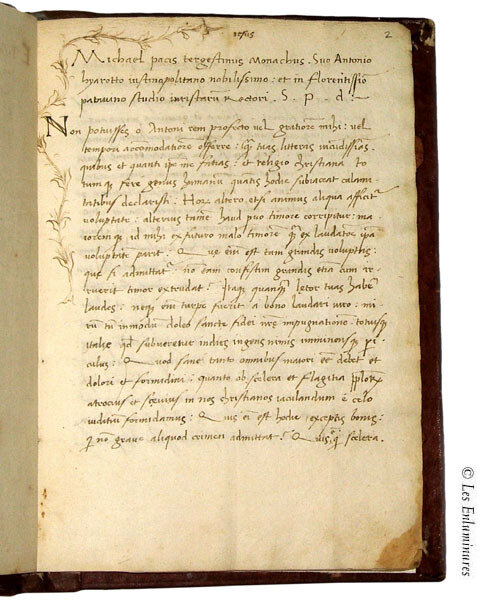 Iesus
2
Michael pacis tergestinus Monachus. Suo Antonio
byarotto iustinopolitano nobilissimo: et in florentissiō
patauino studio iuristarum Rectori. S. P. d.
Non potuisses o Antoni rem profecto uel gratiorem mihi: uel
tempori accomodatiorem offerre: tuas litteris
quibus et quanti me facias: et religio christiana to
tumq; fere genus humanum quantis hodie subiaceat calami
tatibus declarasti. Hoc altero etsi animus aliqua afficiat
uoluptate: alterius tamē haud puo timore corripitur: ma
ioremq; id mihi ex futuro malo timorē q; ex laudatione ipsa
uoluptatē parit. Que eīm est tam grandis uoluptas:
que si admittat no eam confestim grandis etiā cum
timor extrudat? Itaq; quanq; letor tuas habere
laudes: neq; eīm turpe fuerit a bono laudari uiro: mi
rum in modum doleo sancte fidei nrē impugnationē: totiusq;
italie qd subuerterit indies ingens nimis imminensq; pi
culus: Quod sane tanto omnibus maiori eē debet et
dolori et formidini: quanto ob scelera et flagitia
atrocius et seuius in nos christianos iaculandum e celo
iuditium formidamus: Quis ei est hodie exceptis bonis:
qi non graue aliquod crimen admittat? Quis scelera.
© Les Enluminures